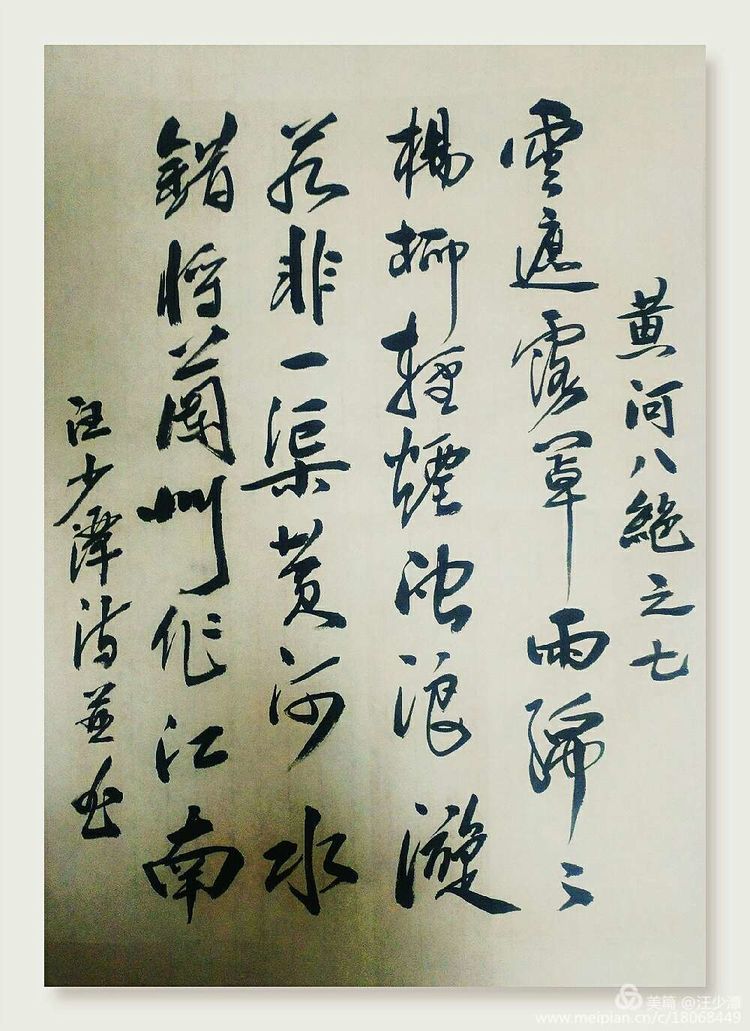 黄河八絶之七
雲遮霧罩雨綿〻
楊柳輕煙浊浪漩
若非一渠黄河水
錯將蘭州作江南
汪少潭诗並书
美篇 @汪少潭
www.meipian.cn/c/18068449